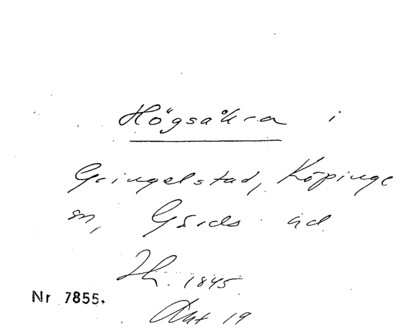 Högsåkra i
Gringelstad, Köpinge
sn, Gärds hd
Sk. 1845
Akt 19
Nr 7855.